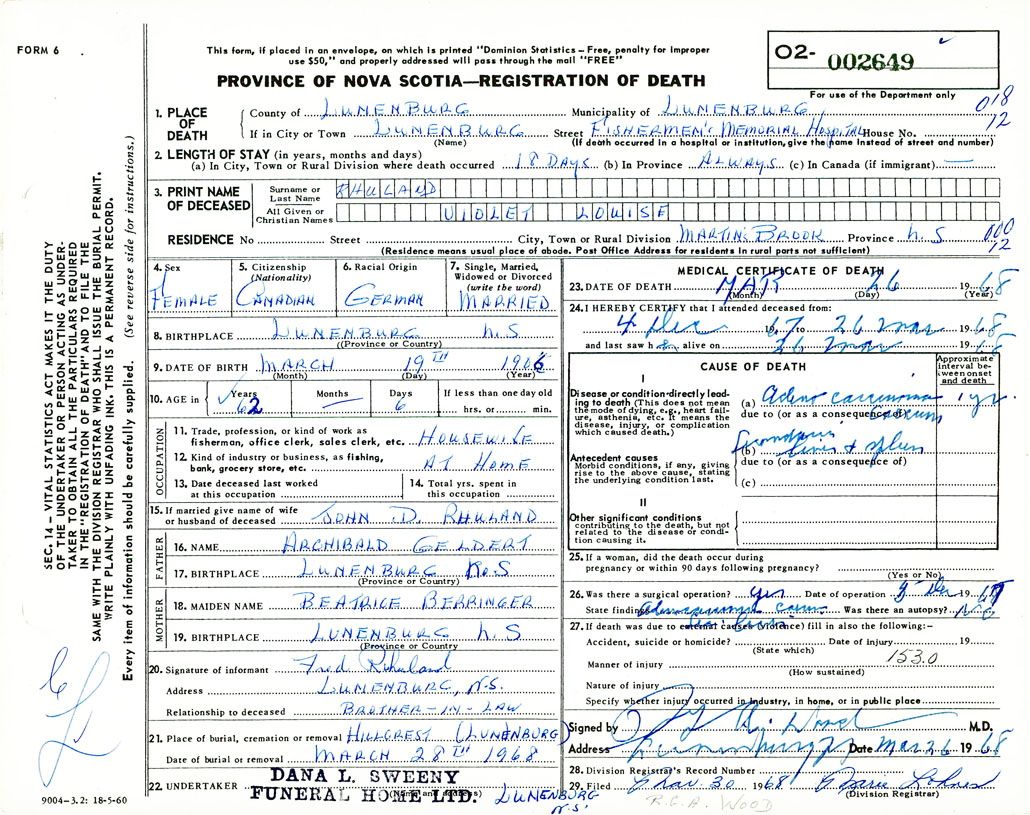 FORM 6
This form, if placed in an envelope, on which is printed "Dominion Statistics – Free, penalty for improper
use $50," and properly addressed will pass through the mail "FREE"
PROVINCE OF NOVA SCOTIA—REGISTRATION OF DEATH
O2- 002649
For use of the Department only
018
12
1. PLACE OF DEATH
County of LUNENBURG Municipality of LUNENBURG
If in City or Town LUNENBURG Street FISHERMEN'S MEMORIAL HOSPITAL House No.
(Name) (If death occurred in a hospital or institution, give the name instead of street and number)
2. LENGTH OF STAY (in years, months and days)
(a) In City, Town or Rural Division where death occurred 18 DAYS (b) In Province ALWAYS (c) In Canada (if immigrant) —
3. PRINT NAME OF DECEASED
Surname or Last Name RHULAND
All Given or Christian Names VIOLET LOUISE
RESIDENCE No Street City, Town or Rural Division MARTIN'S BROOK Province N.S
000
12
(Residence means usual place of abode. Post Office Address for residents in rural parts not sufficient)
4. Sex
FEMALE
5. Citizenship
(Nationality)
CANADIAN
6. Racial Origin
GERMAN
7. Single, Married, Widowed or Divorced
(write the word)
MARRIED
8. BIRTHPLACE LUNENBURG N.S
(Province or Country)
9. DATE OF BIRTH MARCH 19TH 1906
(Month) (Day) (Year)
10. AGE in Years 62 Months — Days 6 If less than one day old hrs. or min.
OCCUPATION
11. Trade, profession, or kind of work as
fisherman, office clerk, sales clerk, etc. HOUSEWIFE
12. Kind of industry or business, as fishing,
bank, grocery store, etc. AT HOME
13. Date deceased last worked
at this occupation
14. Total yrs. spent in
this occupation
15. If married give name of wife
or husband of deceased JOHN D. RHULAND
FATHER
16. NAME ARCHIBALD GELDERT
17. BIRTHPLACE LUNENBURG N.S
(Province or Country)
MOTHER
18. MAIDEN NAME BEATRICE BERRINGER
19. BIRTHPLACE LUNENBURG N.S
(Province or Country
20. Signature of informant Fred Rhuland
Address LUNENBURG, N.S.
Relationship to deceased BROTHER-IN-LAW
21. Place of burial, cremation or removal HILLCREST (LUNENBURG)
Date of burial or removal MARCH 28TH 1968
22. UNDERTAKER DANA L. SWEENY
FUNERAL HOME LTD. LUNENBURG
N.S.
9004-3.2: 18-5-60
MEDICAL CERTIFICATE OF DEATH
23. DATE OF DEATH MAR 26 1968
(Month) (Day) (Year)
24. I HEREBY CERTIFY that I attended deceased from:
4 Dec 1967 26 Mar 1968
and last saw h alive on 26 Mar 1968
CAUSE OF DEATH
Approximate interval between onset and death
I
Disease or condition directly leading to death (This does not mean the mode of dying, e.g., heart failure, asthenia, etc. It means the disease, injury, or complication which caused death.)
(a) Adeno carcinoma 1 yr.
due to (or as a consequence of) caecum
Antecedent causes
Morbid conditions, if any, giving rise to the above cause, stating the underlying condition last.
(b) Secondaries liver + spleen
due to (or as a consequence of)
(c)
II
Other significant conditions
contributing to the death, but not related to the disease or condition causing it.
25. If a woman, did the death occur during
pregnancy or within 90 days following pregnancy?
(Yes or No)
26. Was there a surgical operation? Yes Date of operation Dec 1967
State findings Was there an autopsy? No
27. If death was due to external causes (violence) fill in also the following:-
Accident, suicide or homicide? Date of injury 19
(State which)
153.0
Manner of injury
(How sustained)
Nature of injury
Specify whether injury occurred in industry, in home, or in public place
Signed by Wood M.D.
Address Lunenburg Date Mar 26 1968
28. Division Registrar's Record Number
29. Filed Mar. 30 1968
(Division Registrar)
R.G.A. WOOD
SEC. 14 – VITAL STATISTICS ACT MAKES IT THE DUTY
OF THE UNDERTAKER OR PERSON ACTING AS UNDER-
TAKER TO OBTAIN ALL THE PARTICULARS REQUIRED
IN THE "REGISTRATION OF DEATH" AND TO FILE THE
SAME WITH THE DIVISION REGISTRAR WHO SHALL ISSUE THE BURIAL PERMIT.
WRITE PLAINLY WITH UNFADING INK. THIS IS A PERMANENT RECORD.
Every item of information should be carefully supplied. (See reverse side for instructions.)